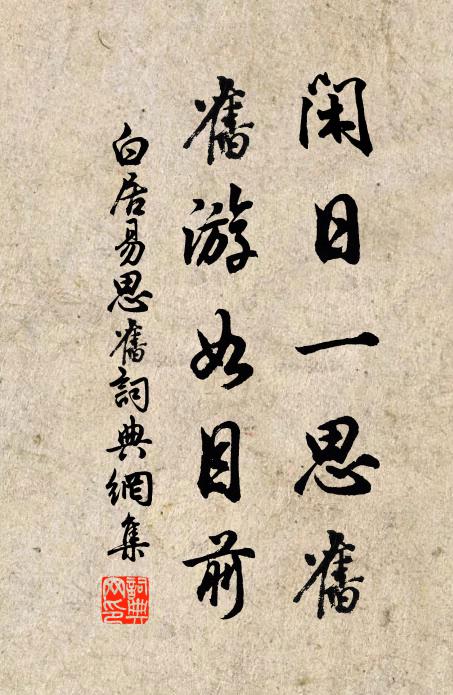 閑日一思舊
舊游如目前
白居易思舊詞典網集
詞典網印